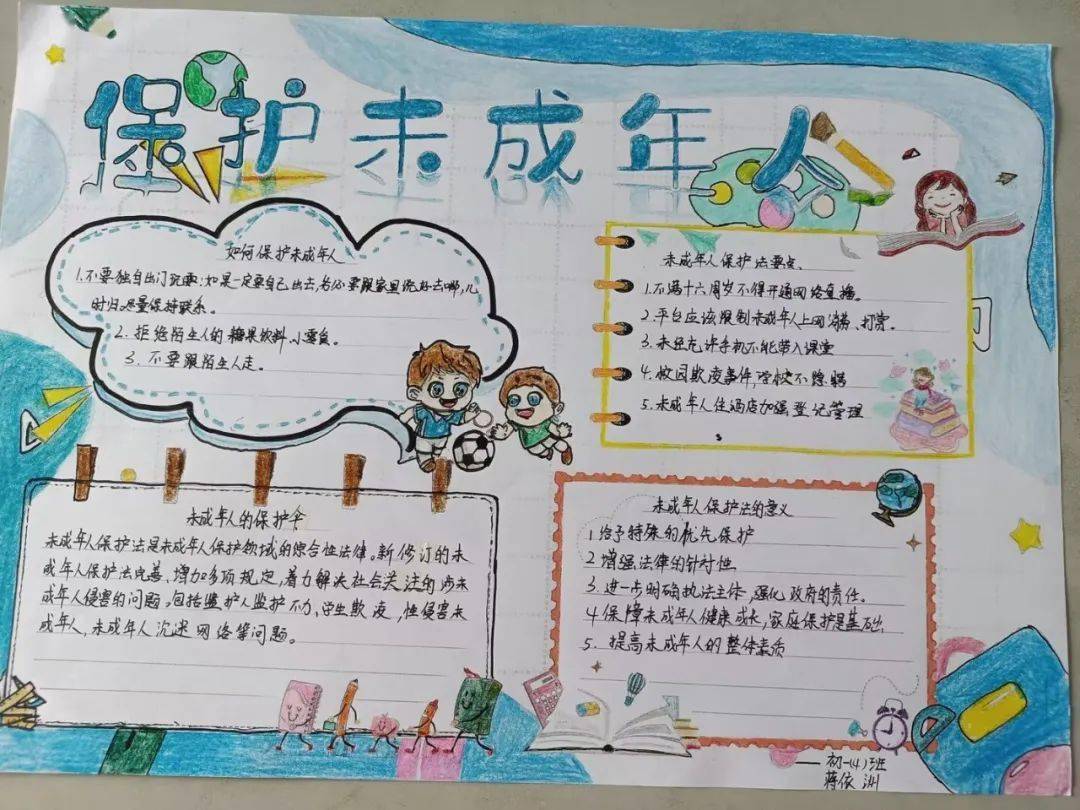 保护未成年人
如何保护未成年人
1.不要独自出门玩耍:如果一定要自己出去,务必要跟家里说好去哪,几
时归,尽量保持联系。
2.拒绝陌生人的糖果饮料小零食。
3.不要跟陌生人走。
未成年人保护法要点、
1.不满十六周岁不得开通网络直播。
2.平台应该限制未成年人上网消费、打赏。
3.未经允许手机不能带入课堂
4.校园欺凌事件,学校不隐瞒
5.未成年人住酒店加强登记管理
未成年人的保护伞
未成年人保护法是未成年人保护领域的综合性法律。新修订的未
成年人保护法完善、增加多项规定,着力解决社会关注的涉未
成年人侵害的问题,包括监护人监护不力、学生欺凌,性侵害未
成年人,未成年人沉迷网络等问题。
未成年人保护法的意义
1给予特殊的优先保护
2增强法律的针对性
3.进一步明确执法主体,强化政府的责任。
4保障未成年人健康成长,家庭保护是基础.
5.提高未成年人的整体素质
初一(4)班
蒋依洲